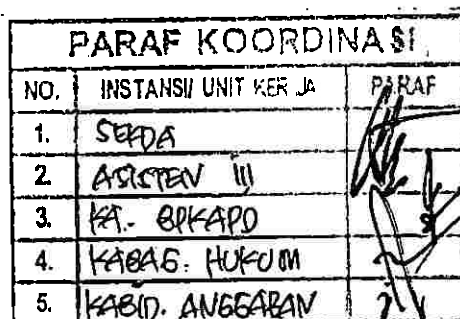 PARAF KOORDINASI
NO. INSTANSI/ UNIT KERJA PARAF
1. SEKDA
2. ASISTEN III
3. KA. BPKAPD
4. KABAG. HUKUM
5. KABID. ANGGARAN